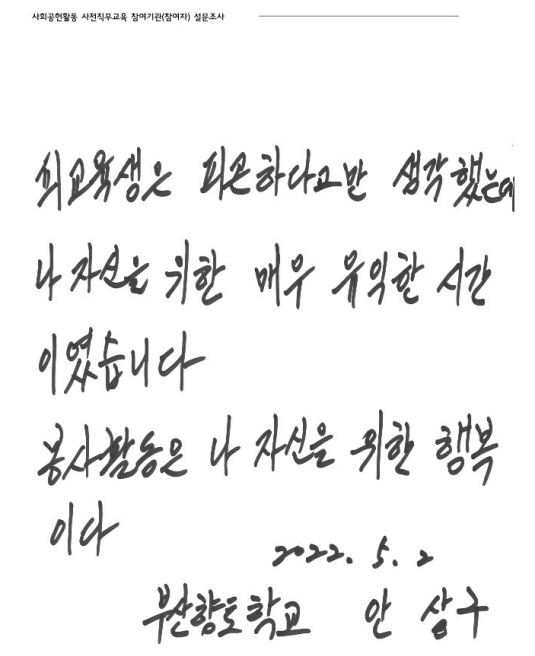 사회공헌활동 사전직무교육 참여기관(참여자) 설문조사
피교육생은 피곤하다고만 생각했는데
나 자신을 위한 매우 유익한 시간
이였습니다
봉사활동은 나 자신을 위한 행복
이다
2022. 5. 2
부산향토학교 안 상구